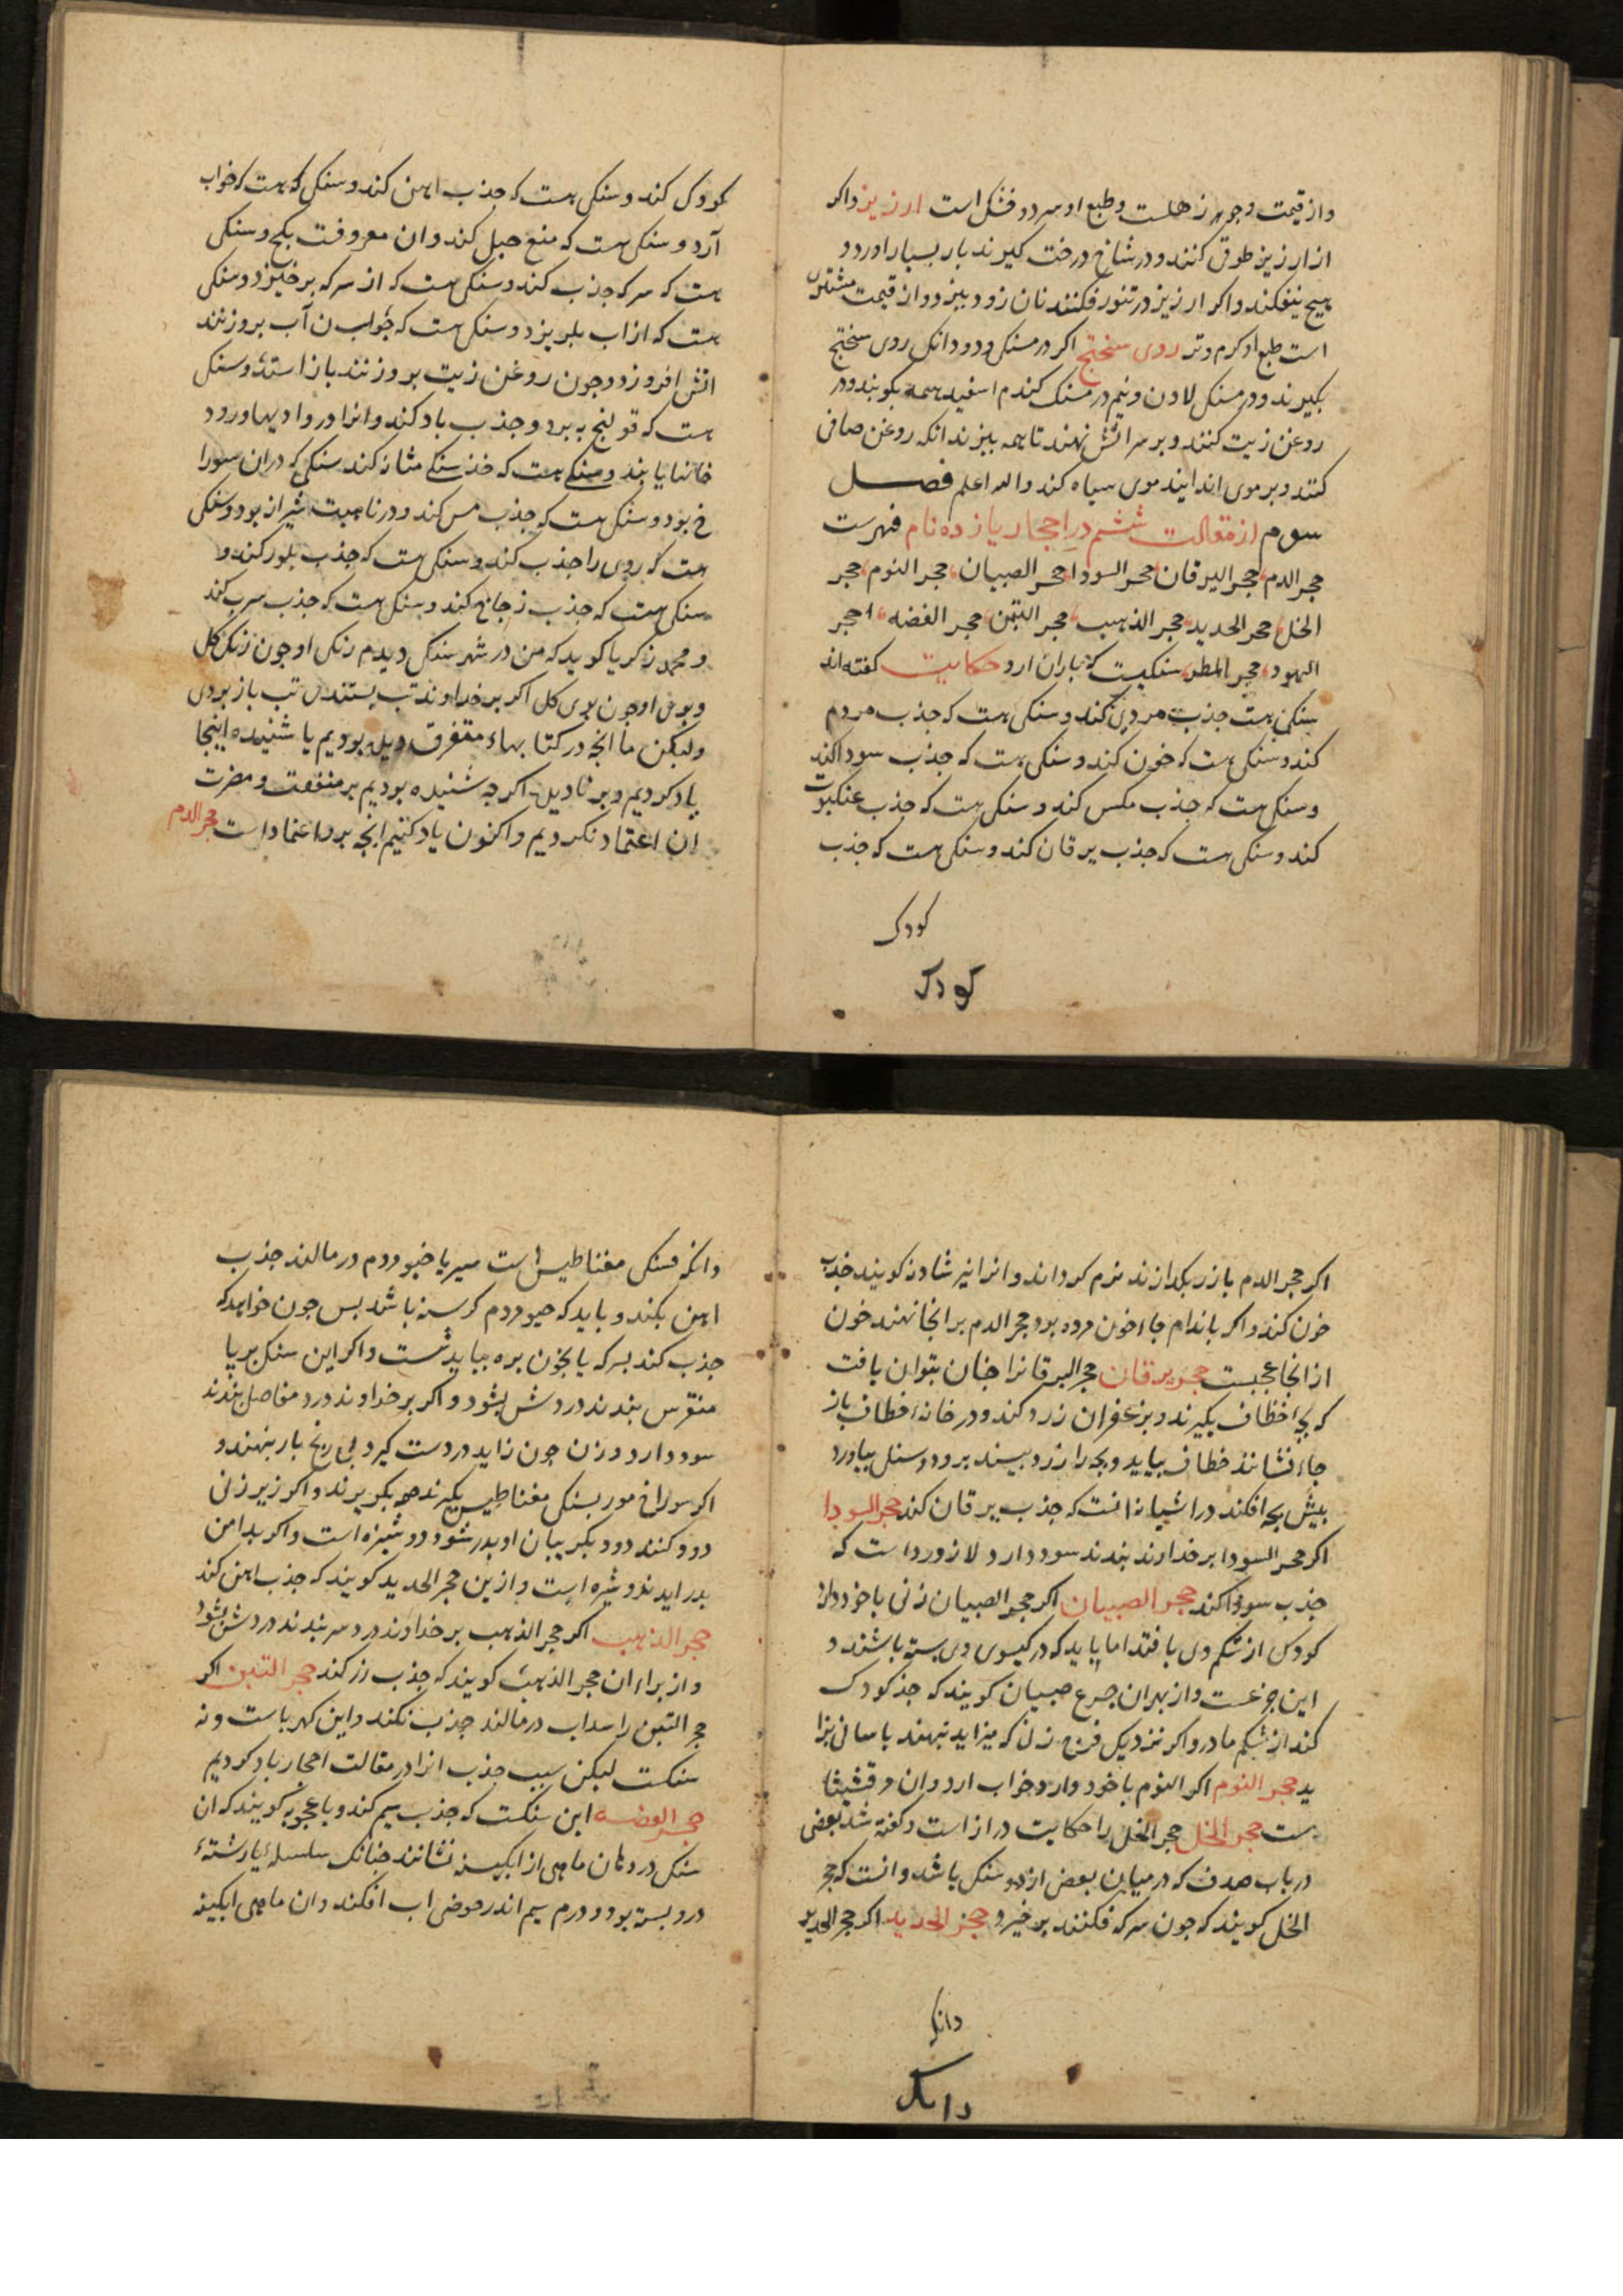 واز قیمت وجوهر زهلست وطبع او سرد و خشک است ارزیز واکر
از ارزیز طوق کنند ودر شاخ درخت کیرند بار بسیار اورد و
هیچ نیفکند واکر ارزیز در تنور فکنند نان زود بپزد واز قیمت مشتری
است طبع او کرم وتر روی سختج اکر درمسنکی ودو دانک روی سختج
بکیرند ودرمسنکی لادن ونیم درمسنک کندم اسفید همه بکوبند ودر
روغن زیت کنند وبر سر اتش نهند تا همه بپزند انکه روغن صافی
کنند وبر موی اندایند موی سیاه کند والله اعلم فصل
سوم از مقالت ششم در احجار یازده نام فهرست
حجر الدم حجر الیرقان حجر السودا حجر الصبیان حجر النوم حجر
الخل حجر الحدید حجر الذهب حجر التبن حجر الفضه حجر
الیهود حجر المطر سنکیست که باران ارد حکایت کفته اند
سنکی هست جذب موی کند وسنکی هست که جذب مردم
کند وسنکی هست که خون کند وسنکی هست که جذب سودا کند
وسنکی هست که جذب مکس کند وسنکی هست که جذب عنکبوت
کند وسنکی هست که جذب یرقان کند وسنکی هست که جذب
کودک
کودک
کودک کند وسنکی هست که جذب اهن کند وسنکی که هست که خواب
آرد وسنکی هست که منع حبل کند وان معروفت بکچ وسنکی
هست که سرکه جذب کند وسنکی هست که از سرکه برخیزد وسنکی
هست که از اب بلریزد وسنکی هست که چواب ن آب بروزنند
اتش افروزد وچون روغن زیت بروزنند باز استد وسنکی
هست که قولنج ببرد وجذب باد کند وانرا در وادیها ورود
خانها یابند وسنکی هست که خذ سنکی مثانه کند سنکی که دران سورا
خ بود وسنکی هست که جذب مس کند ودر ناحیت شیراز بود وسنکی
هست که روی را جذب کند وسنکی هست که جذب بلور کند و
سنکی هست که جذب زجاج کند وسنکی هست که جذب سرب کند
ومحمد زکریا کوید که من در شهر سنکی دیدم رنک او جون رنک کل
وبوی او جون بوی کل اکر بر خداوند تب بستندی تب باز بردی
ولیکن ما انچه در کتابهاء متفرق دیده بودیم یا شنیده اینجا
یاد کردیم وبر نادیده اکرچه شنیده بودیم بر منفعت ومضرت
ان اعتماد نکردیم واکنون یاد کنیم انچه برو اعتماد است حجر الدم
اکر حجر الدم بازر بکدازند نرم کرداند وانرا نیز شادنه کویند جذب
خون کند واکر باندام جاء خون مرده بود حجر الدم بر انجا نهند خون
از انجا عجبست حجر یرقان حجر الیرقانرا چنان بتوان یافت
که بچه خطاف بکیرند وبزعفران زرد کنند ودر خانه خطاف باز
جاء نشانند خطاف بیاید وبچه را زرد بیند برود وسنکی بیاورد
پیش بچه افکند در اشیانه انست که جذب یرقان کند حجر السودا
اکر حجر السودا بر خداوند بندند سود دارد ولازورد است که
جذب سودا کند حجر الصبیان اکر حجر الصبیان زنی باخود دارد
کودک از شکم وی بافتد اما باید که در کیسوی وی بسته باشند و
این جزعست واز بهران جزع صبیان کویند که جذ کودک
کند از شکم مادر واکر نزدیک فرج زن که میزاید نهند باسانی بزا
ید حجر النوم اکر النوم باخود دارد خواب ارد وان مرقشیثا
ست حجر الخل حجر الخل را حکایت دراز است وکفته شد بعضی
در باب صدف که در میان بعضی ازو سنکی باشد وانست که حجر
الخل کویند که جون سرکه فکنند برخیزد حجر الحدید اکر حجر الحدید
دانک
دانک
وانکه سنکی مغناطیس است سیر یا خیو مردم درمالند جذب
اهن نکند وباید که خیو مردم کرسنه باشد پس جون خواهد که
جذب کند بسرکه یا بخون بره بباید شست واکر این سنک بر پا
منقرس بندند دردش بشود واکر بر خداوند درد مفاصل بندند
سود دارد وزن جون زاید در دست کیرد بی رنج بار بنهد و
اکر سوراخ مور بسنکی مغناطیس بکیرند همه بکریزند واکر زیر زنی
دود کنند دود بکریبان او بدر شود دوشیزه است واکر بدامن
بدر اید نه دوشیزه است وازین حجر الحدید کویند که جذب اهن کند
حجر الذهب اکر حجر الذهب بر خداوند درد سر بندند دردش بشود
واز براء ان حجر الذهب کویند که جذب زر کند حجر التبن اکر
حجر التبن را سداب درمالند جذب نکند واین کهرباست ونه
سنکست لیکن سبب جذب انرا در مقالت احجار یاد کردیم
حجر الفضه این سنکست که جذب سیم کند وباعجوبه کویند که ان
سنک در دهان ماهی از ابکینه نشانند چنانک سلسلهٔ یا رشتهٔ
درو بسته بود ودرم سیم اندر حوض اب افکند وان ماهی ابکینه